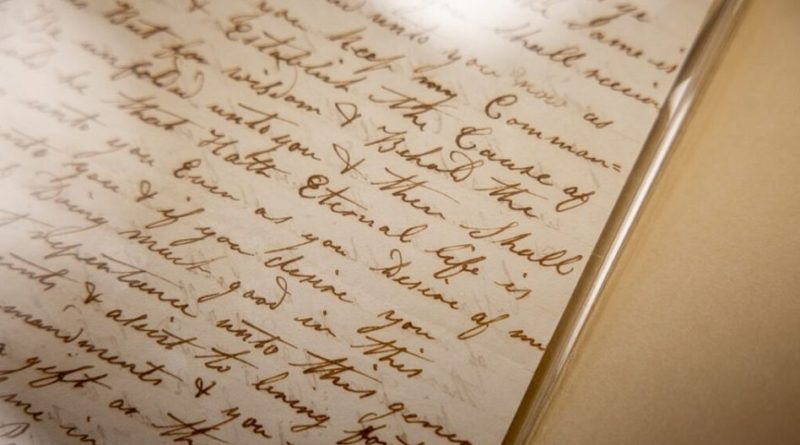 ye
Same is
Shall receive
unto you now as
you Keep my Comman=
& Establish the Cause of
But for wisdom & Behold the
be unfolded unto you & then Shall
he that Hath Eternal life is
unto you Even as you Desire of me
unto you & if you desire you
Doing much good in this
repentance unto this gener
ments & asist to bring fo
mandments & you
a gift or th
me in